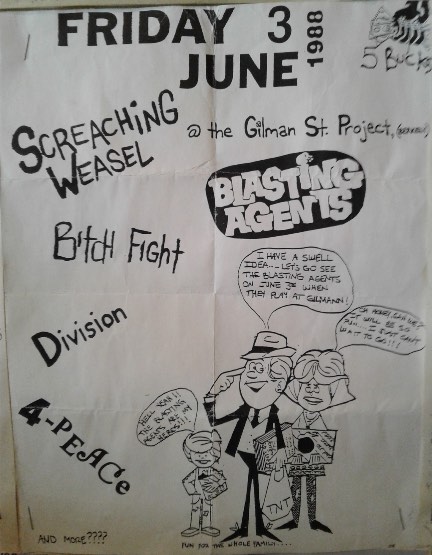 FRIDAY 3
JUNE 1988
5 Bucks
SCREACHING
WEASEL
@ the Gilman St. Project,
BLASTING
AGENTS
Bitch Fight
I HAVE A SWELL
IDEA... LET'S GO SEE
THE BLASTING AGENTS
ON JUNE 3RD WHEN
THEY PLAY AT GILMANN!
IT WILL BE SO
FUN... I JUST CAN'T
WAIT TO GO!!!
Division
4-PEACe
HELL YEAH!!
THE BLASTING
AGENTS ARE MY
TNT
AND MORE????
FUN FOR THE WHOLE FAMILY....